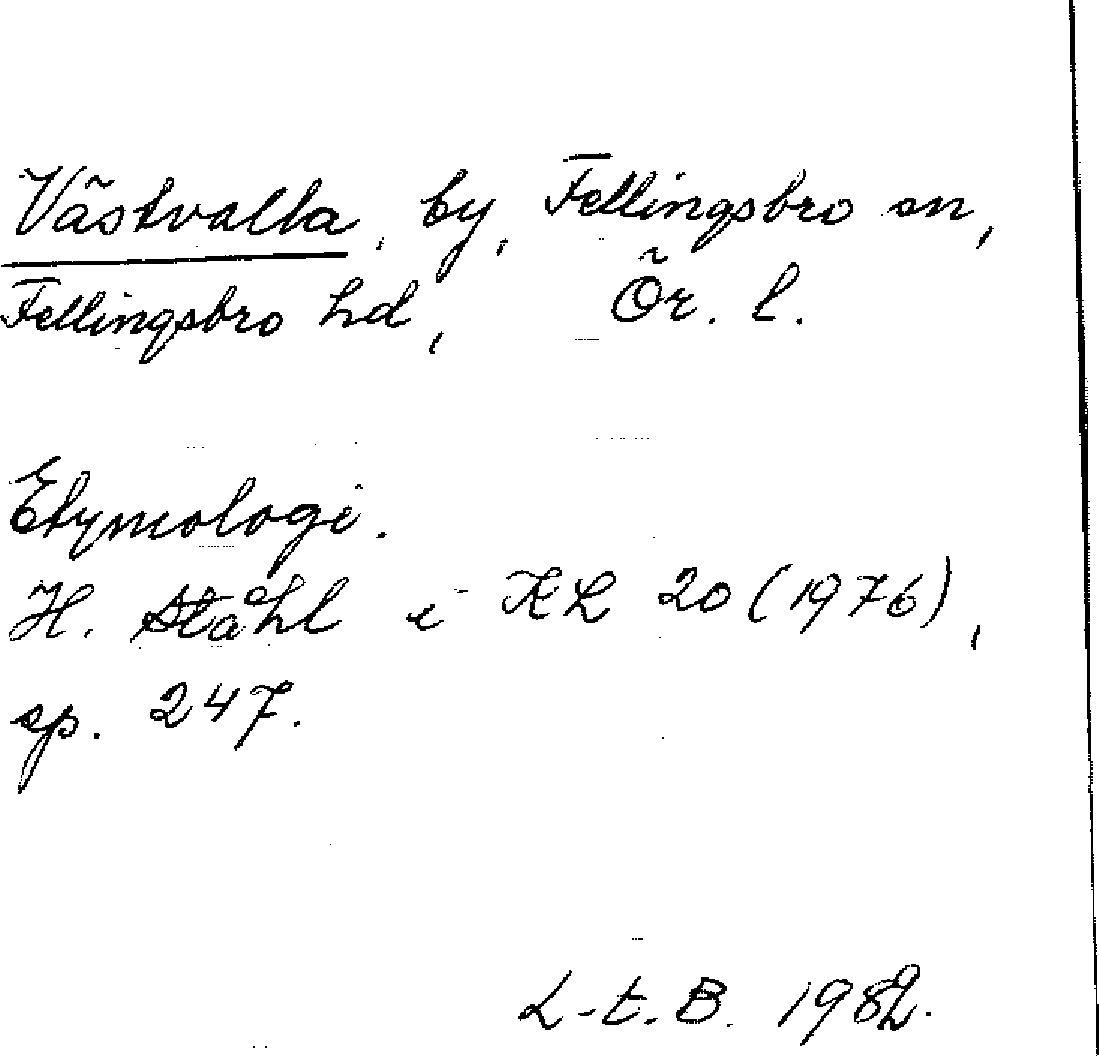 Västvalla, by, Fellingsbro sn,
Fellingsbro hd, Ör. l.
Etymologi.
H. Ståhl i KL 20 (1976),
sp. 247.
L-t. B. 1982.